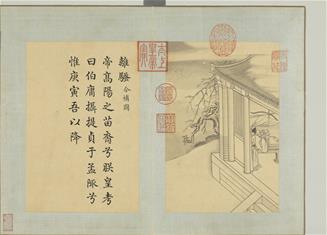 離騷 今補圖
帝高陽之苗裔兮朕皇考
曰伯庸攝提貞于孟陬兮
惟庚寅吾以降